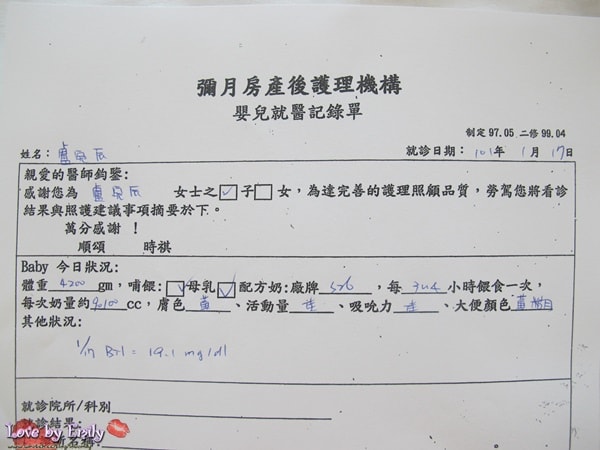 彌月房產後護理機構
嬰兒就醫記錄單
制定 97.05 二修 99.04
姓名: 盧 辰 就診日期: 101年 1月 17日
親愛的醫師鈞鑒:
感謝您為 盧 辰 女士之☑子☐女,為達完善的護理照顧品質,勞駕您將看診
結果與照護建議事項摘要於下。
萬分感謝 !
順頌 時祺
Baby 今日狀況:
體重 4200 gm,哺餵:☑母乳☑配方奶:廠牌 S26 ,每 3-4 小時餵食一次,
每次奶量約90-100cc,膚色 黃 、活動量 佳 、吸吮力 佳 、大便顏色黃
其他狀況:
1/17 Bil = 19.1 mg/dl
就診院所/科別
就診結果:
Love by Emily